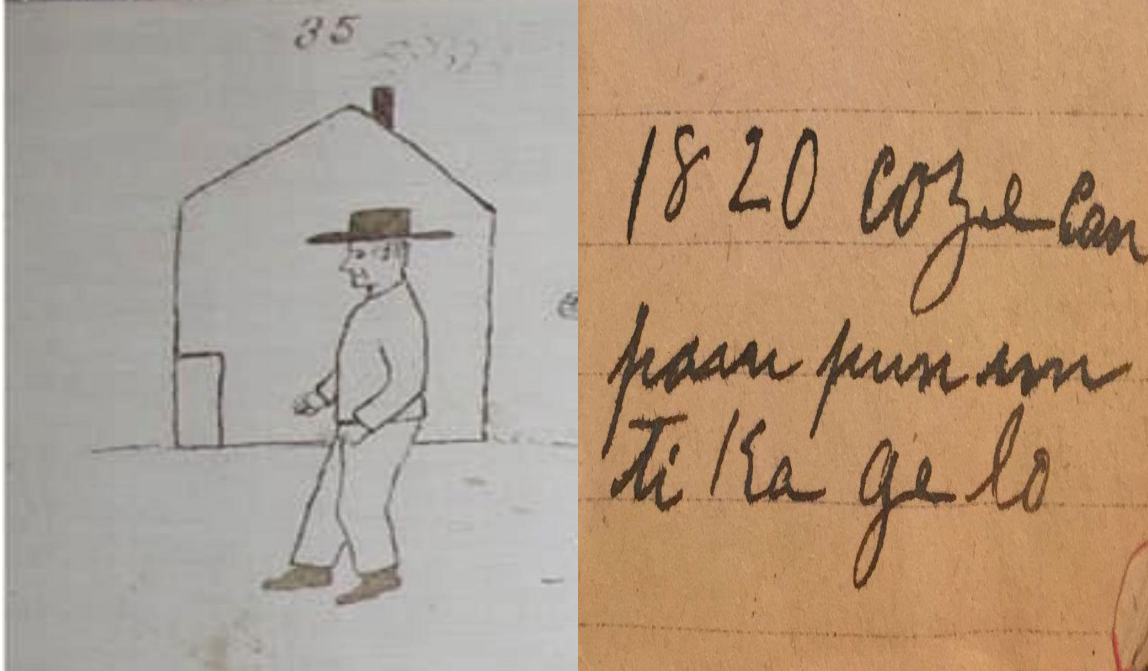 35
1820 coze can
paan pun un
ti Ka ge lo